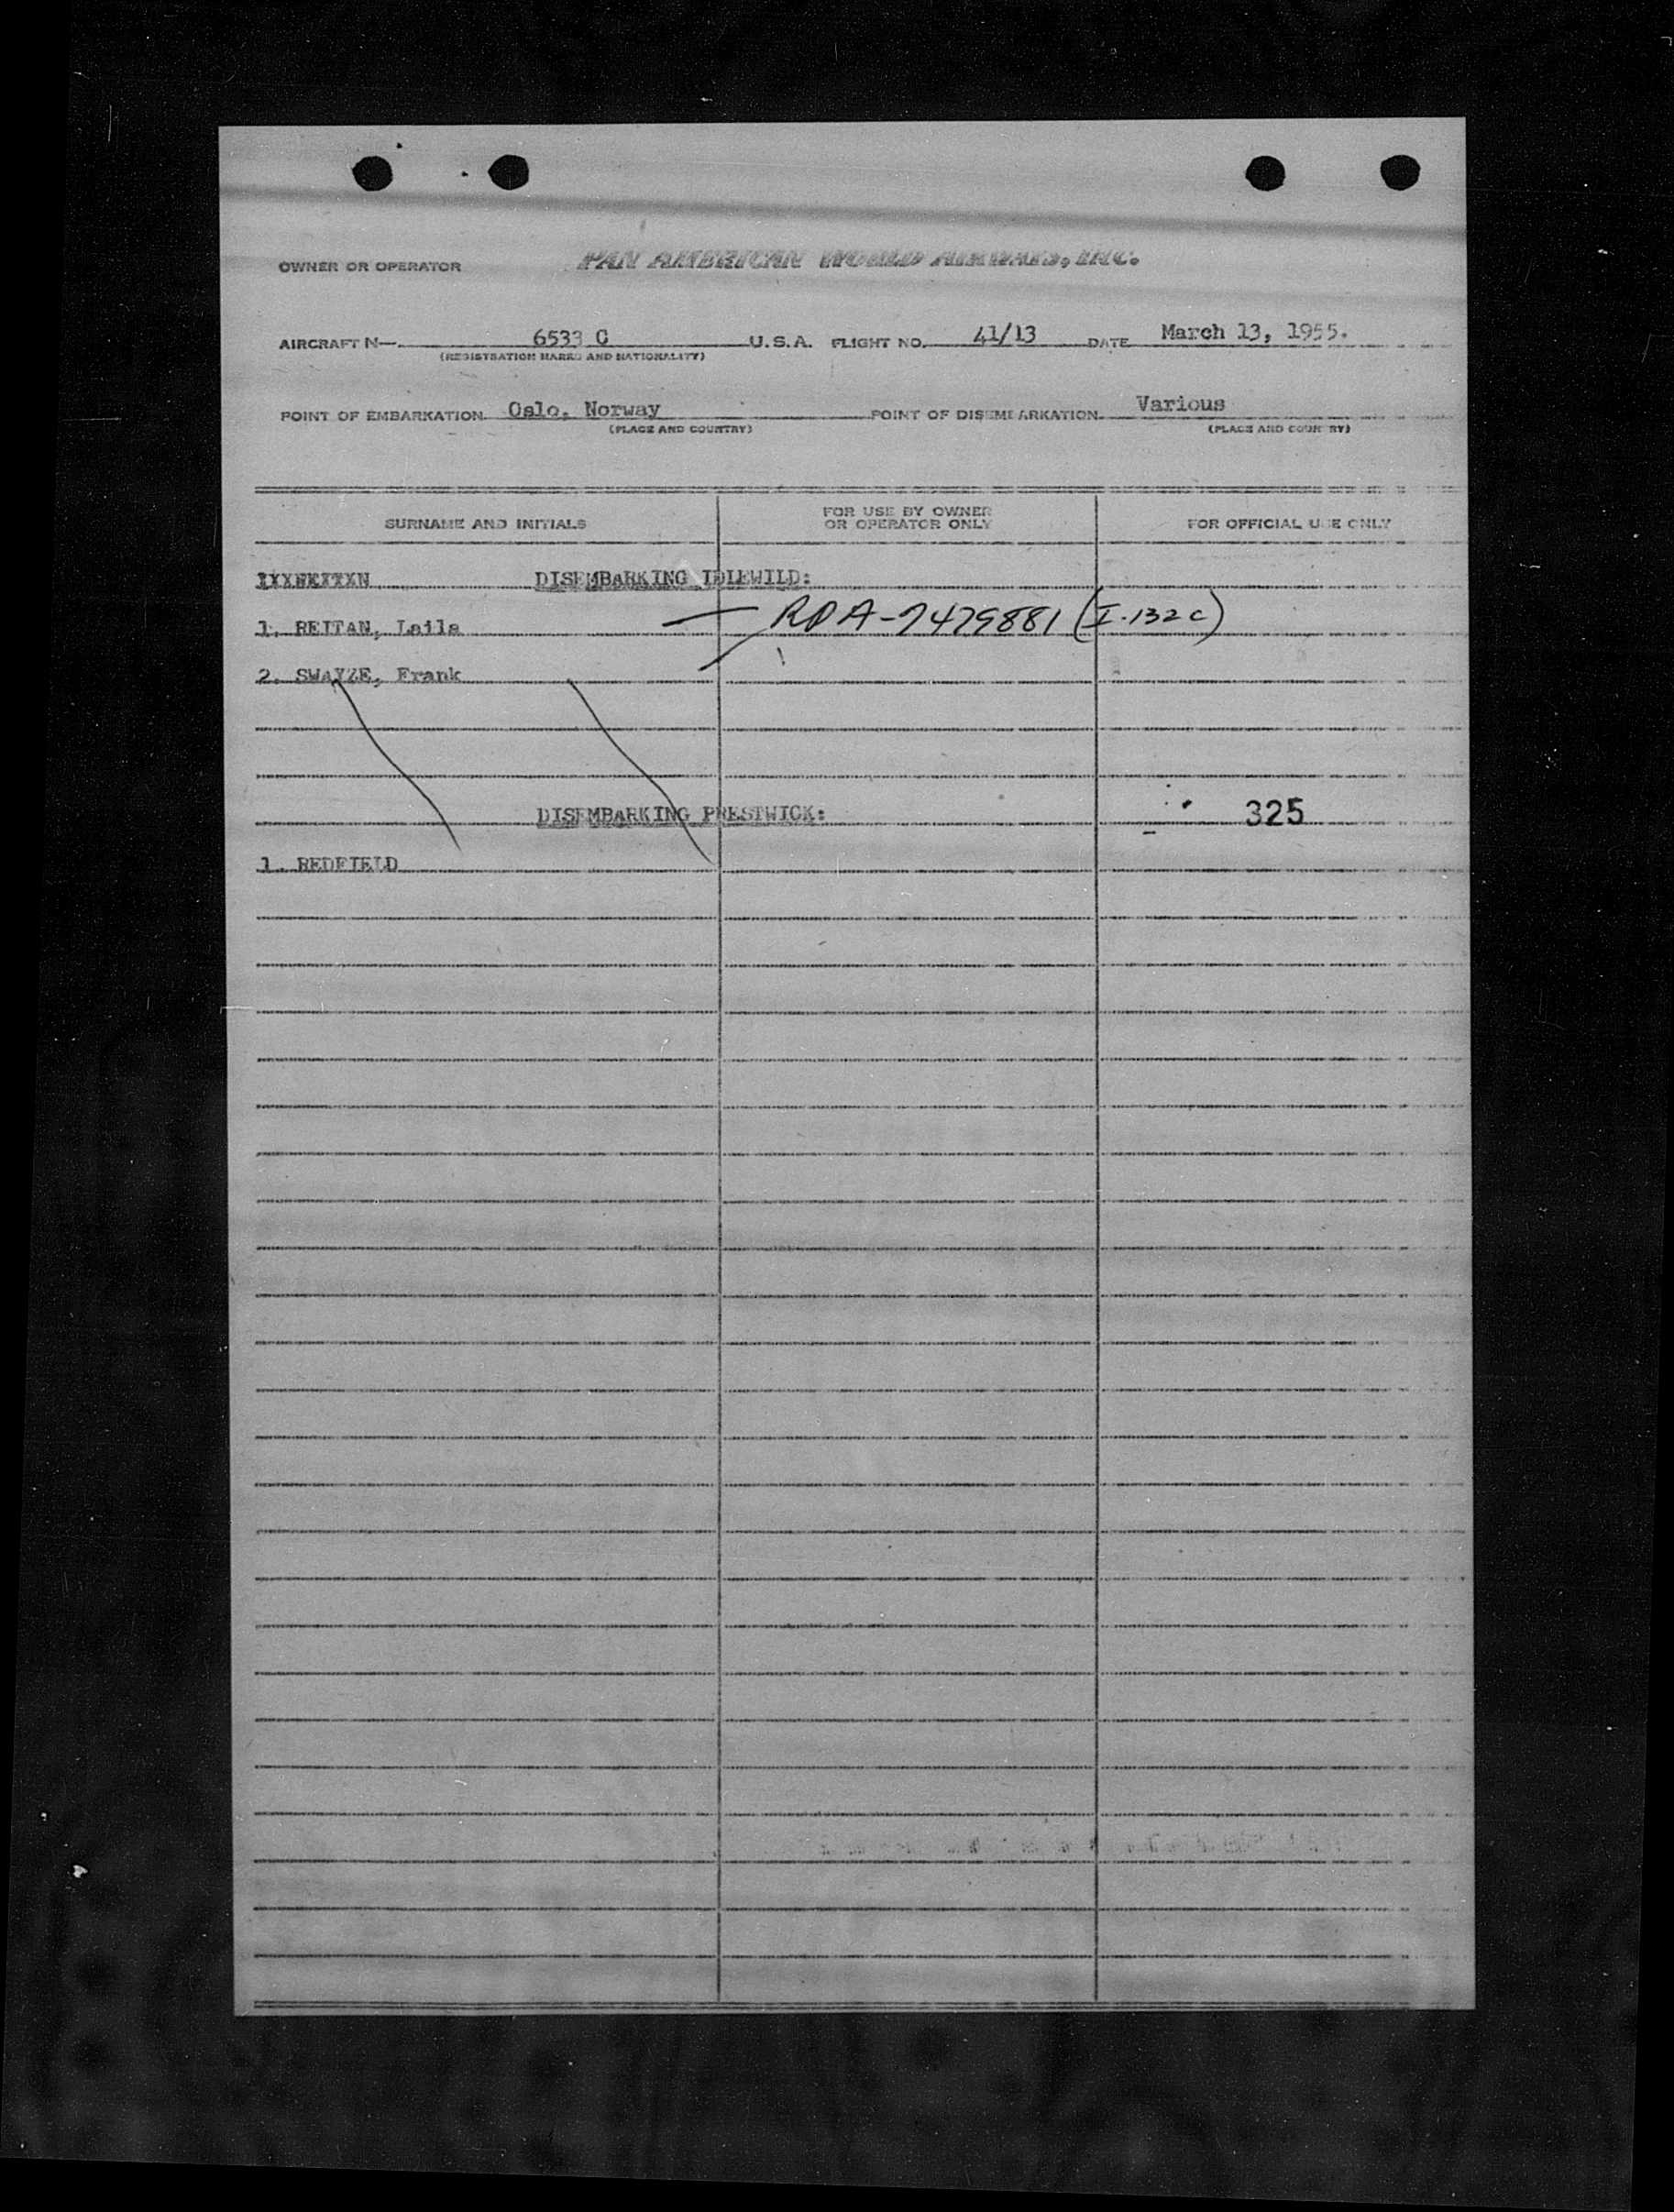 OWNER OR OPERATOR PAN AMERICAN WORLD AIRWAYS, INC.
AIRCRAFT N— 6533 C U.S.A. FLIGHT NO. 41/13 DATE March 13, 1955.
(REGISTRATION MARKS AND NATIONALITY)
POINT OF EMBARKATION Oslo, Norway POINT OF DISEMBARKATION Various
(PLACE AND COUNTRY) (PLACE AND COUNTRY)
SURNAME AND INITIALS FOR USE BY OWNER OR OPERATOR ONLY FOR OFFICIAL USE ONLY
DISEMBARKING IDLEWILD:
1. REITAN, Laila — RPA-7479881 (I-132c)
2. SWAYZE, Frank
DISEMBARKING PRESTWICK: 325
1. REDFIELD